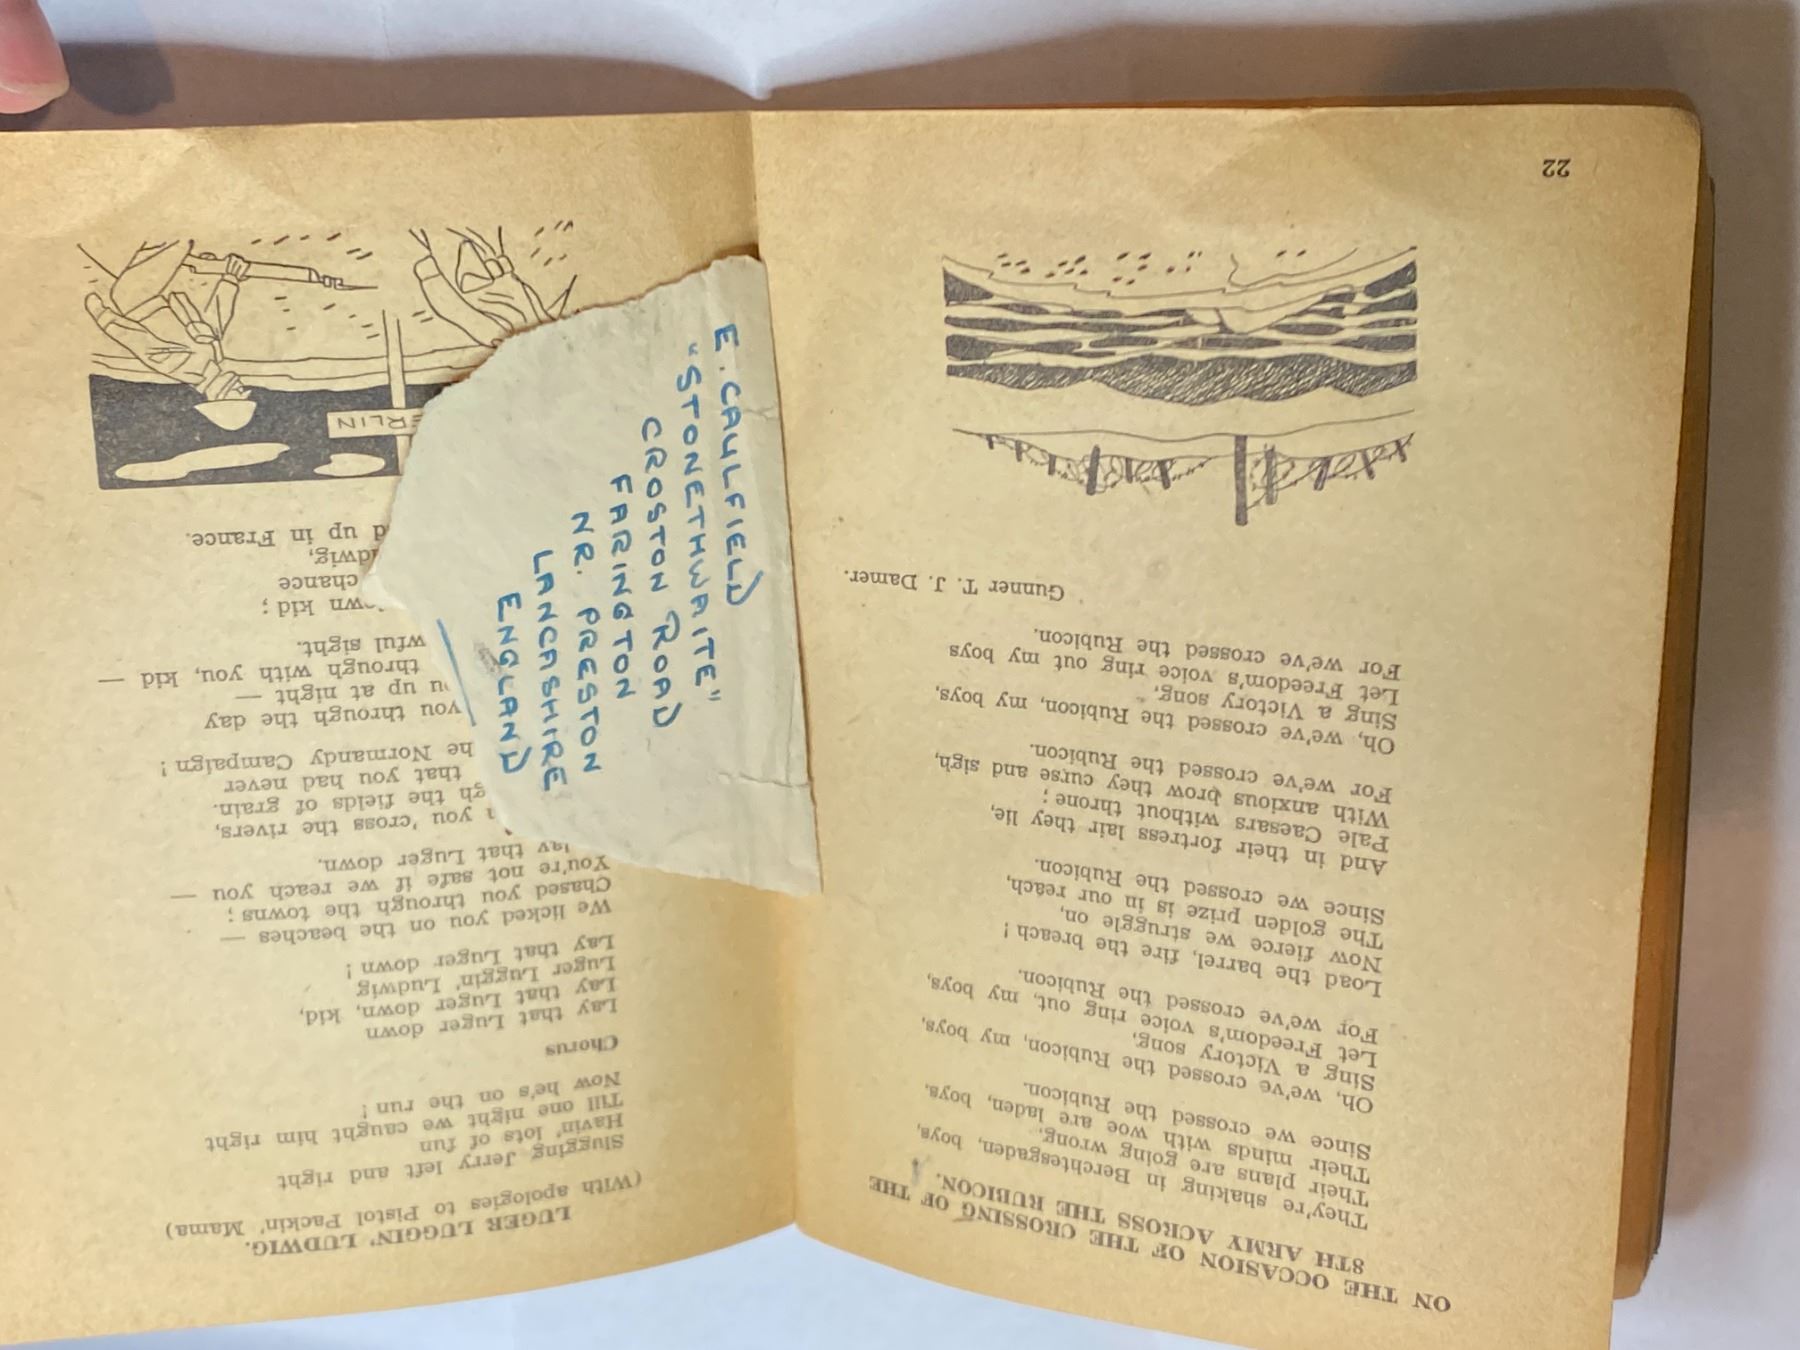 22
ON THE OCCASION OF THE CROSSING OF THE
8TH ARMY ACROSS THE RUBICON.
They're shaking in Berchtesgaden, boys,
Their plans are going wrong,
Their minds with woe are laden, boys,
Since we crossed the Rubicon.
Oh, we've crossed the Rubicon, my boys,
Sing a Victory song,
Let Freedom's voice ring out, my boys,
For we've crossed the Rubicon.
Load the barrel, fire the breach!
Now fierce we struggle on,
The golden prize is in our reach,
Since we crossed the Rubicon.
And in their fortress lair they lie,
Pale Caesars without throne;
With anxious brow they curse and sigh,
For we've crossed the Rubicon.
Oh, we've crossed the Rubicon, my boys,
Sing a Victory song,
Let Freedom's voice ring out my boys
For we've crossed the Rubicon.
Gunner T. J. Damer.
LUGER LUGGIN' LUDWIG.
(With apologies to Pistol Packin' Mama)
Slugging Jerry left and right
Havin' lots of fun
Till one night we caught him right
Now he's on the run!
Chorus
Lay that Luger down
Lay that Luger down, kid,
Luger Luggin' Ludwig
Lay that Luger down!
We licked you on the beaches —
Chased you through the towns;
You're not safe if we reach you —
lay that Luger down.
you 'cross the rivers,
the fields of grain.
that you had never
he Normandy Campaign!
you through the day
up at night —
through with you, kid —
wful sight.
wn kid;
chance
dwig,
up in France.
ERLIN
E. CAULFIELD
"STONETHWAITE"
CROSTON ROAD
FARINGTON
NR. PRESTON
LANCASHIRE
ENGLAND